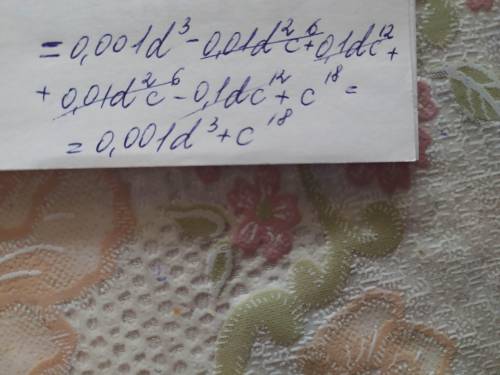 = 0,001d³ - 0,01d²c⁶ + 0,1dc¹² +
+ 0,01d²c⁶ - 0,1dc¹² + c¹⁸ =
= 0,001d³ + c¹⁸